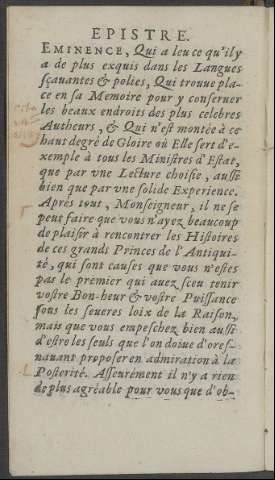 EPISTRE.
EMINENCE, Qui a leu ce qu'il y
a de plus exquis dans les Langues
sçauantes & polies, Qui trouue pla-
ce en sa Memoire pour y conseruer
les beaux endroits des plus celebres
Autheurs, & Qui n'est montée à ce
haut degré de Gloire où Elle sert d'e-
xemple à tous les Ministres d'Estat,
que par vne Lecture choisie, aussi
bien que par vne solide Experience.
Après tout, Monseigneur, il ne se
peut faire que vous n'ayez beaucoup
de plaisir à rencontrer les Histoires
de ces grands Princes de l'Antiqui-
té, qui sont causes que vous n'estes
pas le premier qui auez sceu tenir
vostre Bon-heur & vostre Puissance
sous les seueres loix de la Raison,
mais que vous empeschez bien aussi
d'estre les seuls que l'on doiue d'ores-
nauant proposer en admiration à la
Posterité. Asseurément il n'y a rien
de plus agréable pour vous que d'ob-